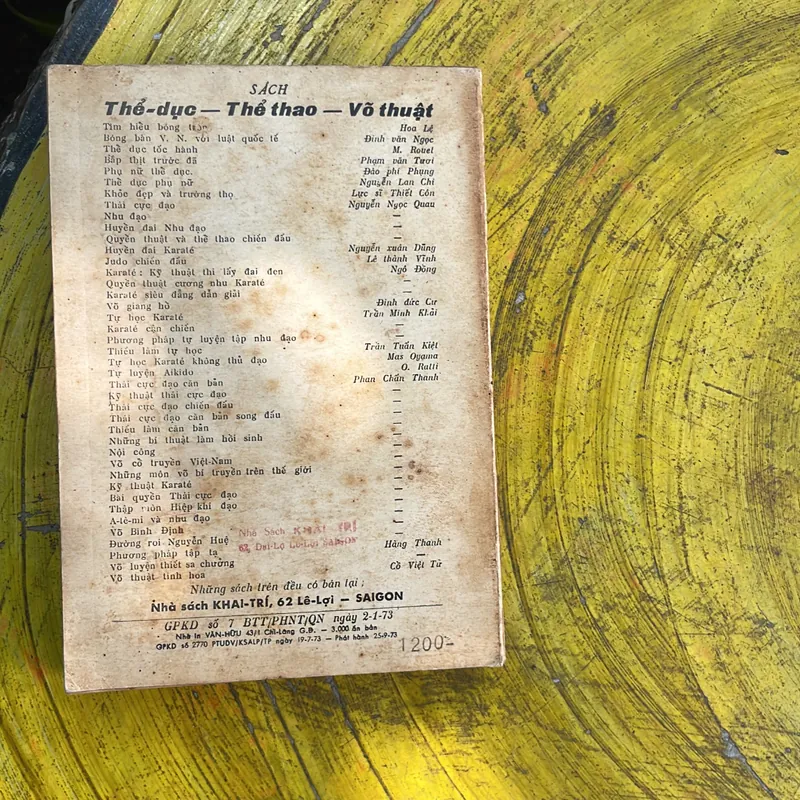 SÁCH
Thể-dục — Thể thao — Võ thuật
Tìm hiểu bóng tròn Hoa Lệ
Bóng bàn V. N. với luật quốc tế Đinh văn Ngọc
Thể dục tốc hành M. Rouet
Bắp thịt trước đã Phạm văn Tươi
Phụ nữ thể dục. Đào phi Phụng
Thể dục phụ nữ Nguyễn Lan Chi
Khỏe đẹp và trường thọ Lực sĩ Thiết Côn
Thái cực đạo Nguyễn Ngọc Quau
Nhu đạo —
Huyền đai Nhu đạo —
Quyền thuật và thể thao chiến đấu —
Huyền đai Karaté Nguyễn xuân Dũng
Judo chiến đấu Lê thành Vĩnh
Karaté: Kỹ thuật thi lấy đai đen Ngô Đồng
Quyền thuật cương nhu Karaté —
Karaté siêu đẳng dẫn giải —
Võ giang hồ Đinh đức Cư
Tự học Karaté Trần Minh Khải
Karaté cận chiến —
Phương pháp tự luyện tập nhu đạo —
Thiếu lâm tự học Trần Tuấn Kiệt
Tự học Karaté không thủ đạo Mas Oyama
Tự luyện Aikido O. Ratti
Thái cực đạo căn bản Phan Chấn Thanh
Kỹ thuật thái cực đạo —
Thái cực đạo chiến đấu —
Thái cực đạo căn bản song đấu —
Thiếu lâm căn bản —
Những bí thuật làm hồi sinh —
Nội công —
Võ cổ truyền Việt-Nam —
Những môn võ bí truyền trên thế giới —
Kỹ thuật Karaté —
Bài quyền Thái cực đạo —
Thập môn Hiệp khí đạo —
A-tê-mi và nhu đạo —
Võ Bình Định —
Nhà Sách KHAI TRÍ
62, Đại-Lộ Lê-Lợi SAIGON
Đường roi Nguyễn Huệ —
Phương pháp tập tạ Hàng Thanh
Võ luyện thiết sa chưởng —
Võ thuật tinh hoa Cồ Việt Tử
Những sách trên đều có bán lại ;
Nhà sách KHAI-TRÍ, 62 Lê-Lợi — SAIGON
GPKD số 7 BTT/PHNT/QN ngày 2-1-73
Nhà in VĂN-HỮU 43/1 Chi-Lăng G.Đ. — 3,000 ấn bản
GPKD số 2770 PTUDV/KSALP/TP ngày 19-7-73 — Phát hành 25-9-73
1200-